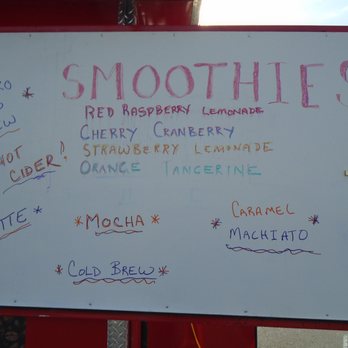 SMOOTHIES
RED RASPBERRY LEMONADE
CHERRY CRANBERRY
STRAWBERRY LEMONADE
ORANGE TANGERINE
HOT
CIDER!
*MOCHA*
CARAMEL
* MACHIATO *
*COLD BREW*